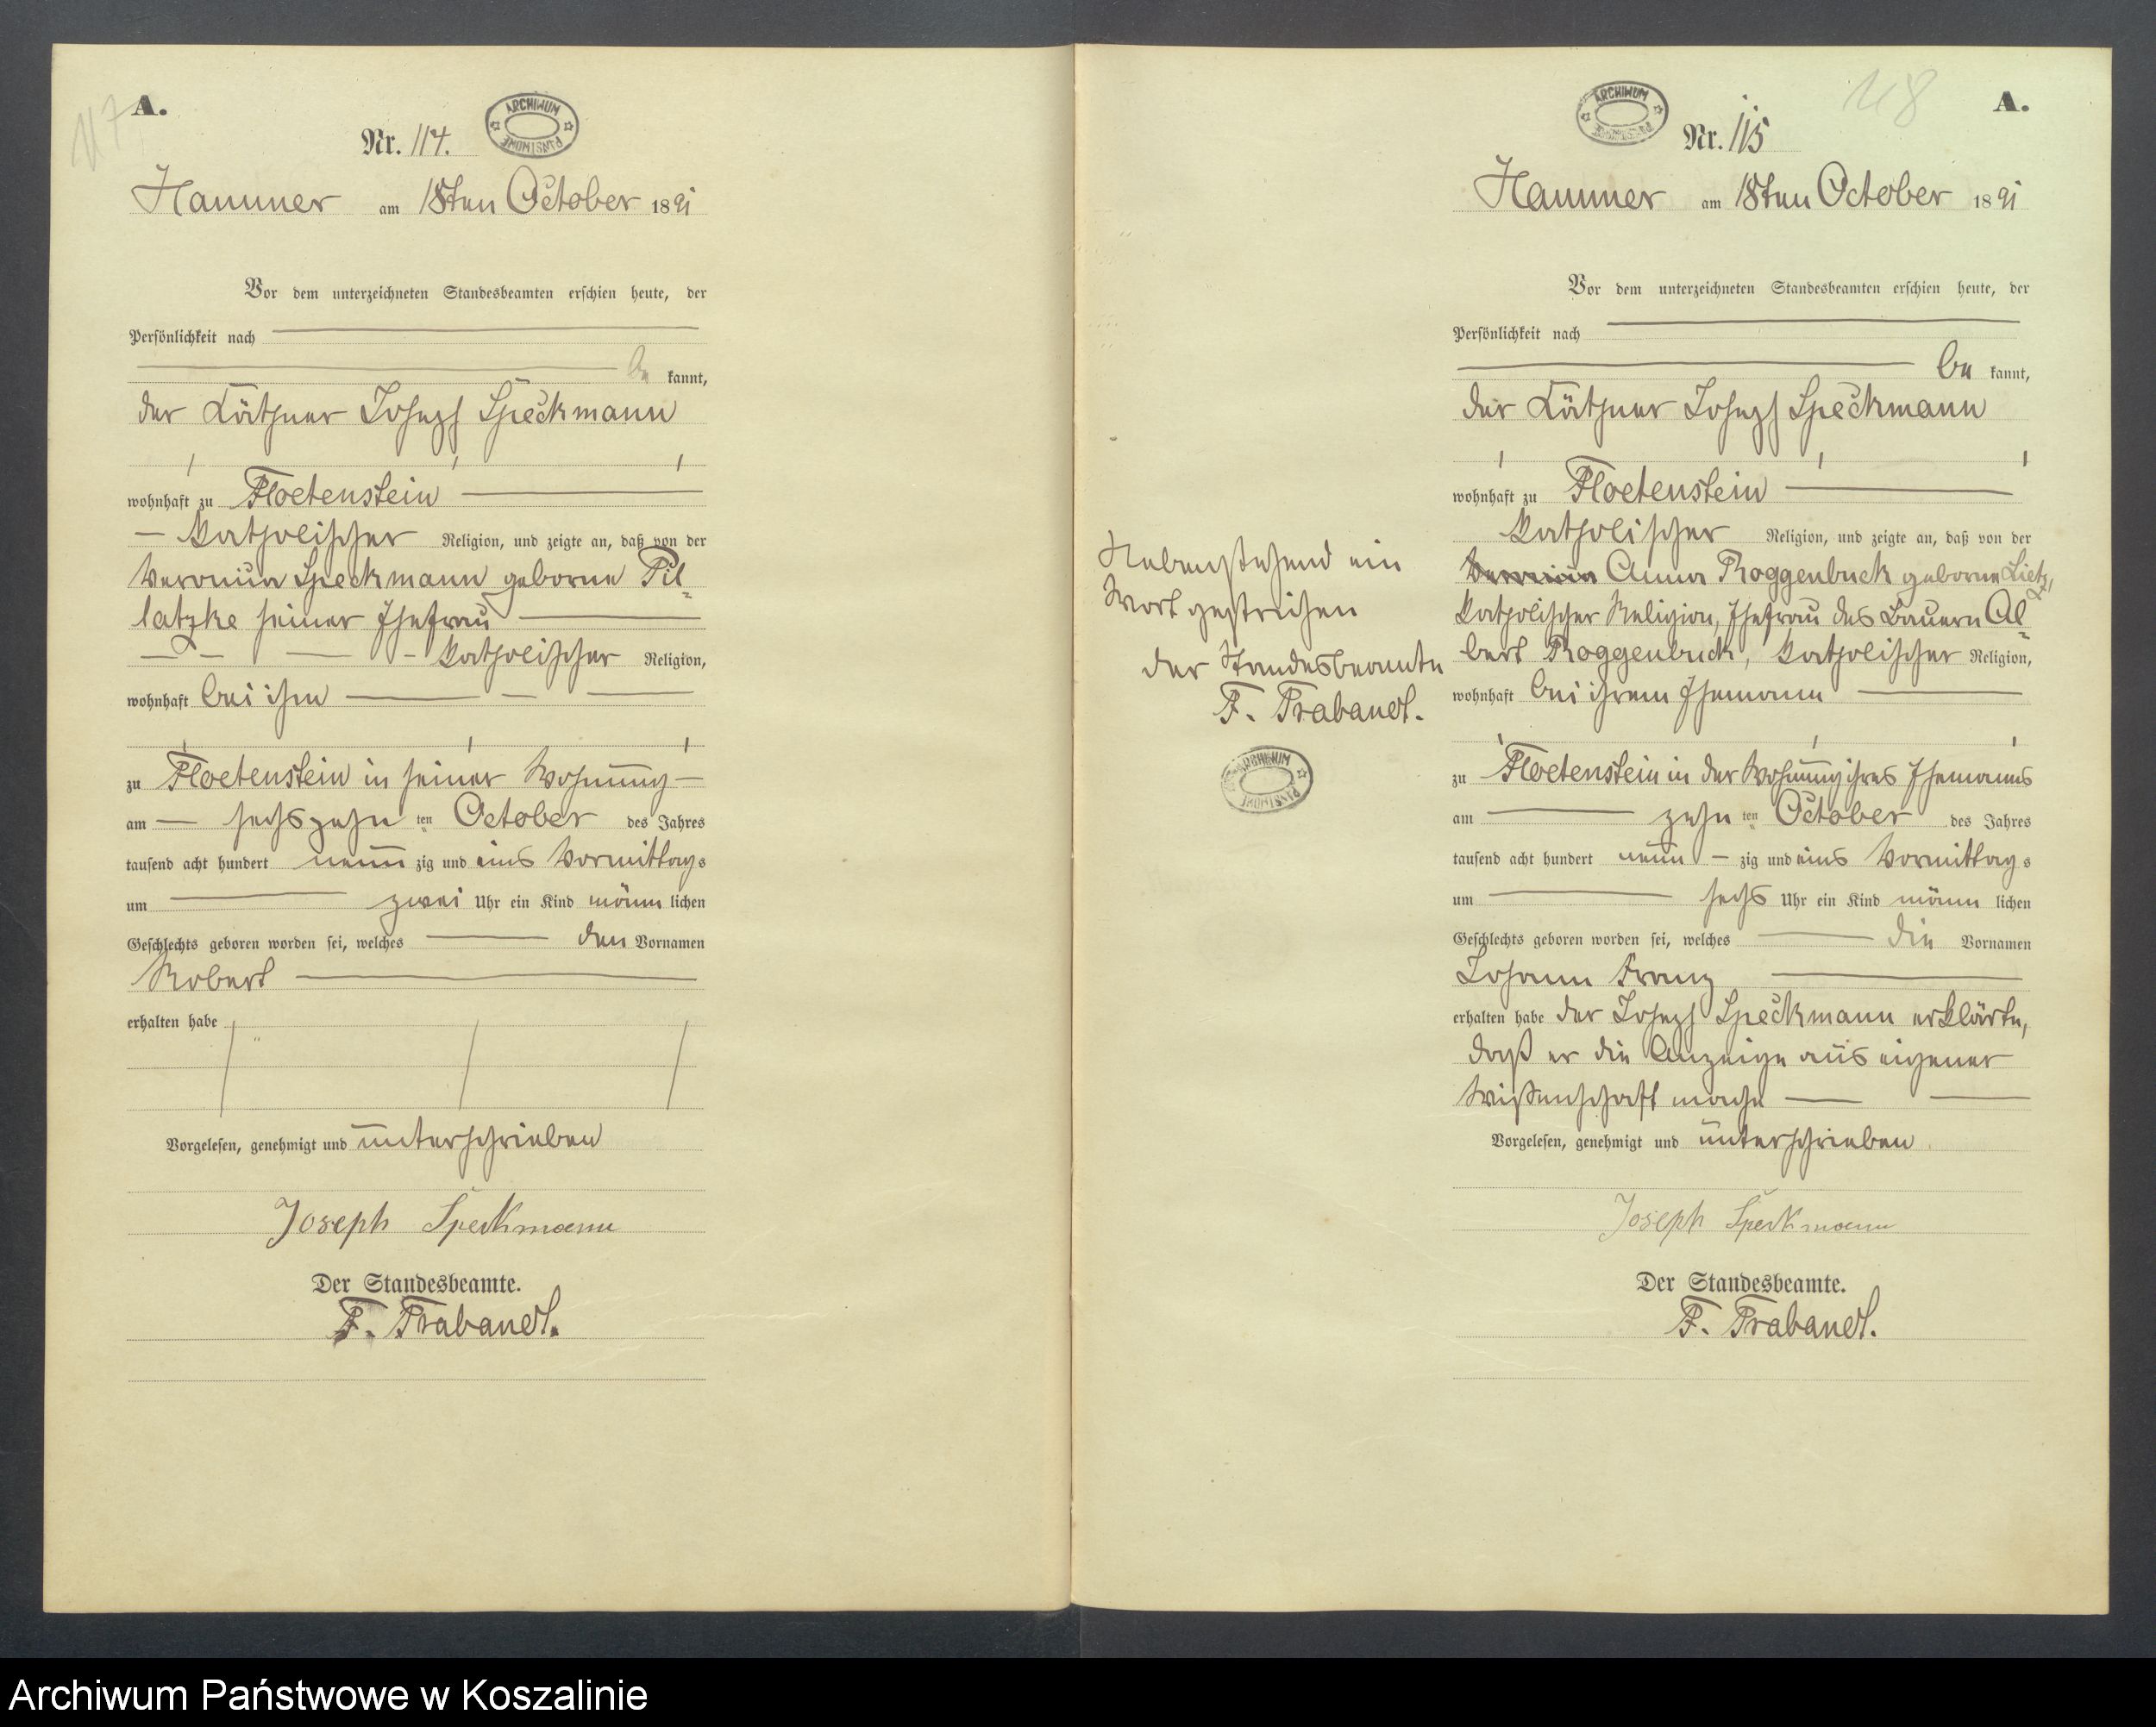 117
A.
ARCHIWUM PAŃSTWOWE
Nr. 114.
Hammer am 18ten October 1891
Vor dem unterzeichneten Standesbeamten erschien heute, der
Persönlichkeit nach
be kannt,
der Käthner Joseph Speckmann
wohnhaft zu Floetenstein
katholischer Religion, und zeigte an, daß von der
Veronica Speckmann geborne Pil-
latzke seiner Ehefrau
katholischer Religion,
wohnhaft bei ihm
zu Floetenstein in seiner Wohnung
am sechszehn ten October des Jahres
tausend acht hundert neun zig und eins Vormittags
um zwei Uhr ein Kind männ lichen
Geschlechts geboren worden sei, welches den Vornamen
Robert
erhalten habe
Vorgelesen, genehmigt und unterschrieben
Joseph Speckmann
Der Standesbeamte.
F. Trabandt.
118
A.
ARCHIWUM PAŃSTWOWE
Nr. 115
Hammer am 18ten October 1891
Vor dem unterzeichneten Standesbeamten erschien heute, der
Persönlichkeit nach
be kannt,
der Käthner Joseph Speckmann
wohnhaft zu Floetenstein
katholischer Religion, und zeigte an, daß von der
Veronica Anna Roggenbuck geborne Lietz,
katholischer Religion, Ehefrau des Bauern Al-
bert Roggenbuck, katholischer Religion,
wohnhaft bei ihrem Ehemann
zu Floetenstein in der Wohnung ihres Ehemanns
am zehn ten October des Jahres
tausend acht hundert neun zig und eins Vormittags
um sechs Uhr ein Kind männ lichen
Geschlechts geboren worden sei, welches die Vornamen
Johann Franz
erhalten habe der Joseph Speckmann erklärte,
daß er die Anzeige aus eigener
Wißenschaft mache
Vorgelesen, genehmigt und unterschrieben
Joseph Speckmann
Der Standesbeamte.
F. Trabandt.
Nebenstehend ein
Wort gestrichen
der Standesbeamte
F. Trabandt.
ARCHIWUM PAŃSTWOWE
Archiwum Państwowe w Koszalinie